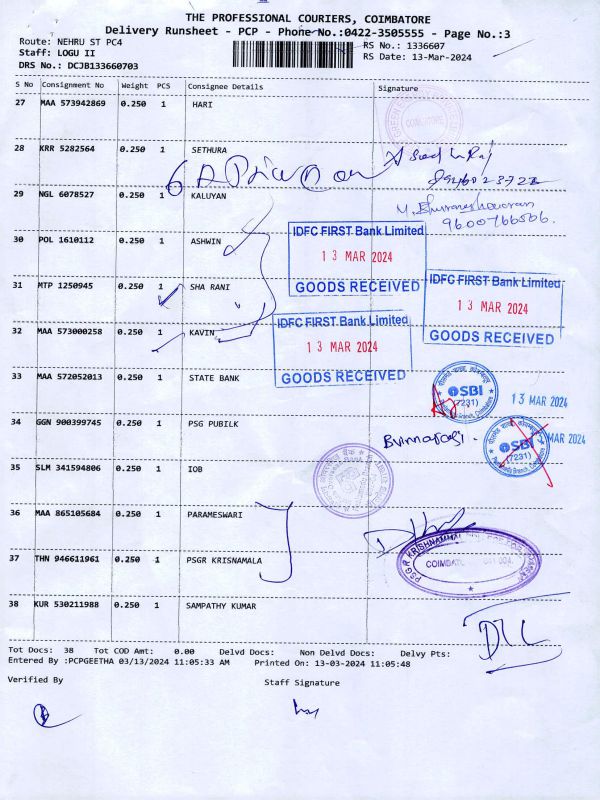 THE PROFESSIONAL COURIERS, COIMBATORE
Delivery Runsheet - PCP - Phone No.:0422-3505555 - Page No.:3
Route: NEHRU ST PC4
RS No.: 1336607
Staff: LOGU II
RS Date: 13-Mar-2024
DRS No.: DCJB133660703
S No Consignment No Weight PCS Consignee Details Signature
27 MAA 573942869 0.250 1 HARI
28 KRR 5282564 0.250 1 SETHURA
29 NGL 6078527 0.250 1 KALUYAN
9600766506.
30 POL 1610112 0.250 1 ASHWIN
IDFC FIRST Bank Limited
13 MAR 2024
GOODS RECEIVED
31 MTP 1250945 0.250 1 SHA RANI
IDFC FIRST Bank Limited
13 MAR 2024
GOODS RECEIVED
32 MAA 573000258 0.250 1 KAVIN
IDFC FIRST Bank Limited
13 MAR 2024
GOODS RECEIVED
33 MAA 572052013 0.250 1 STATE BANK
SBI
(7231)
13 MAR 2024
34 GGN 900399745 0.250 1 PSG PUBILK
SBI
(7231)
MAR 2024
35 SLM 341594806 0.250 1 IOB
36 MAA 865105684 0.250 1 PARAMESWARI
37 THN 946611961 0.250 1 PSGR KRISNAMALA
PSGR KRISHNAMMAL
38 KUR 530211988 0.250 1 SAMPATHY KUMAR
Tot Docs: 38 Tot COD Amt: 0.00 Delvd Docs: Non Delvd Docs: Delvy Pts:
Entered By :PCPGEETHA 03/13/2024 11:05:33 AM Printed On: 13-03-2024 11:05:48
Verified By Staff Signature